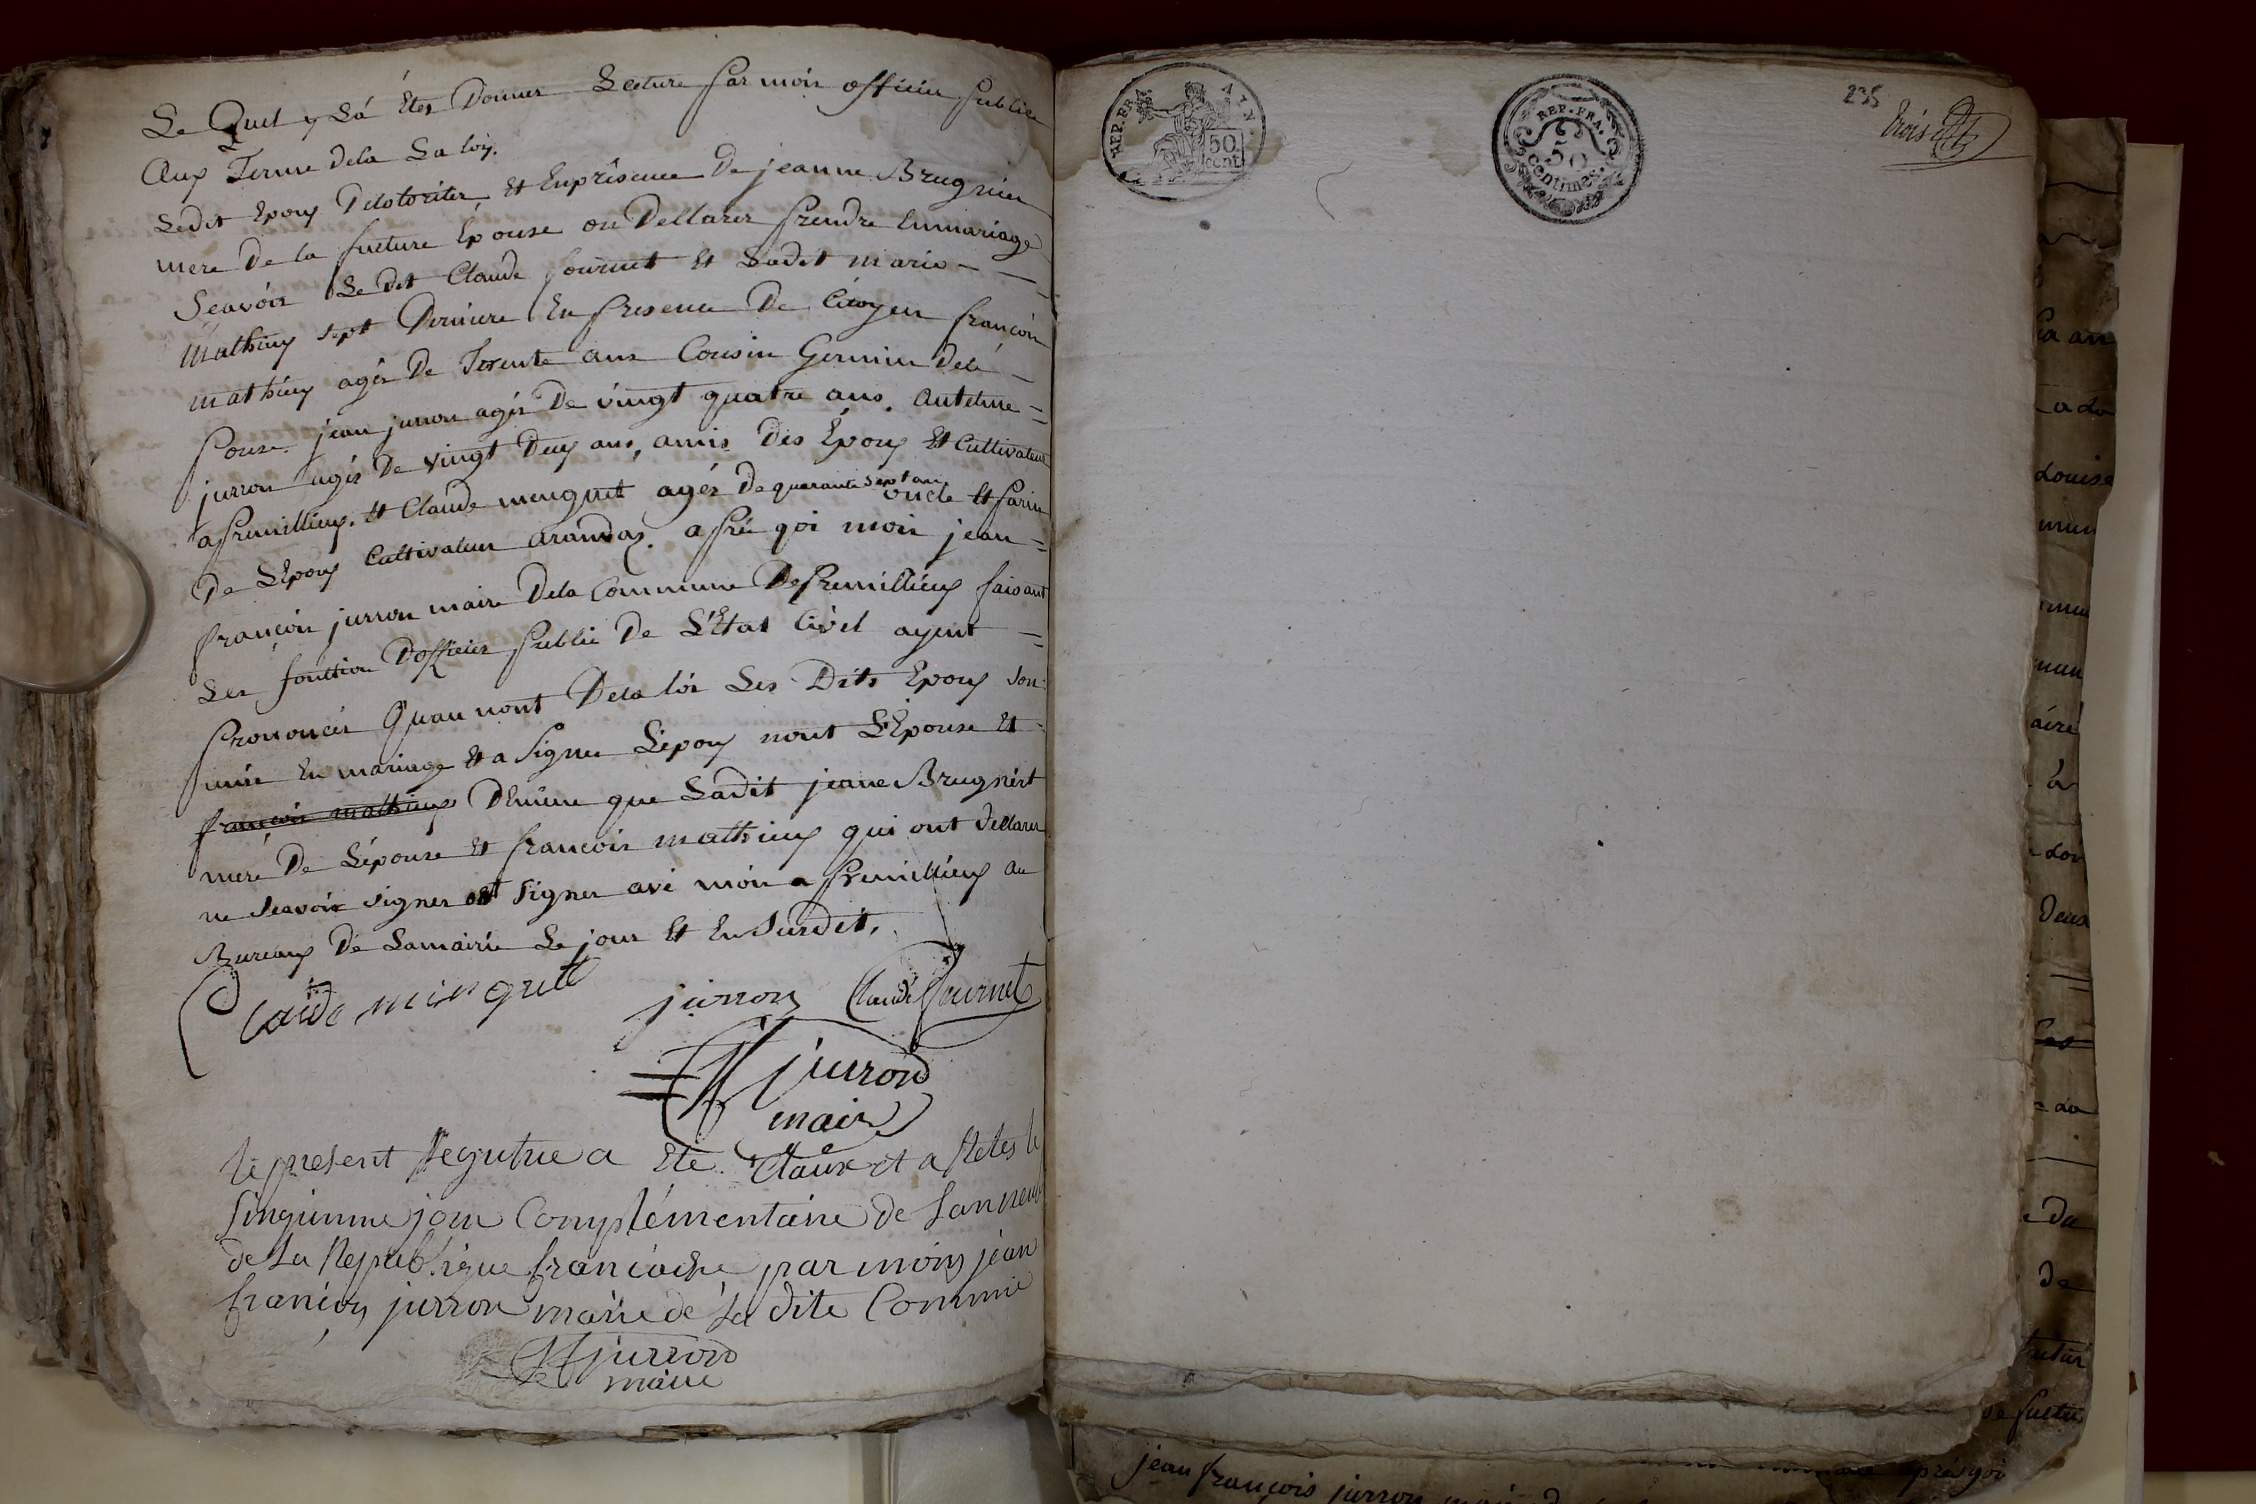 Le Quel y Lá Etes Donner Lecture par moin officier public
Aux Terme dela La loy.
Ledit Epoux Et Enprésence De jeanne Brugnier
mere De la future Epouse on Dellarer prendre Enmariage
Seavoir Le Dit Claude fournet Et Ladit marie
Mathieux sept Derniere En presence De Citoyen françoin
mathieux agés De Trente ans Cousin Germin Delé
pouse. jean jurron agés De vingt quatre ans. antelme
jurron agés De vingt Deux ans, amis Des Epoux Et Cultivateur
apremillieux. Et Claude menguet agés De quarante sept an oncle Et parin
De LEpoux Cultivateur arandaz. a pré qoi moin jean
françoin jurron maire Dela Commune De premillieux faisant
Les fonttion Dofficier public De LEtat Civil ayent
prononcér Quau nont Dela loi Les Dits Epoux son
unis En mariage Et a Signer Lépoux nont LEpouse Et
françoin mathieux Deniere que Ladit jeane Brugnért
mere De Lépouse Et francoin mathieux qui ont dellarer
ne seavoir signer ont signer avé moin a premillieux au
Bureaux De Lamairie Le jour Et En Surdit.
Claude minguet jurron Claude fournet
jurron
maire
le present Regittre a Eté Claux et a retes le
Sinquieme jour Complémentaire de Lan neuf
de La Republique francaise par moin jean
françois jurron maire de La dite Commune
jurron
maire
REP. FRA. 50 cent.
AIN.
REP. FRA. 50 centimes.
235
trois
jean françois jurron